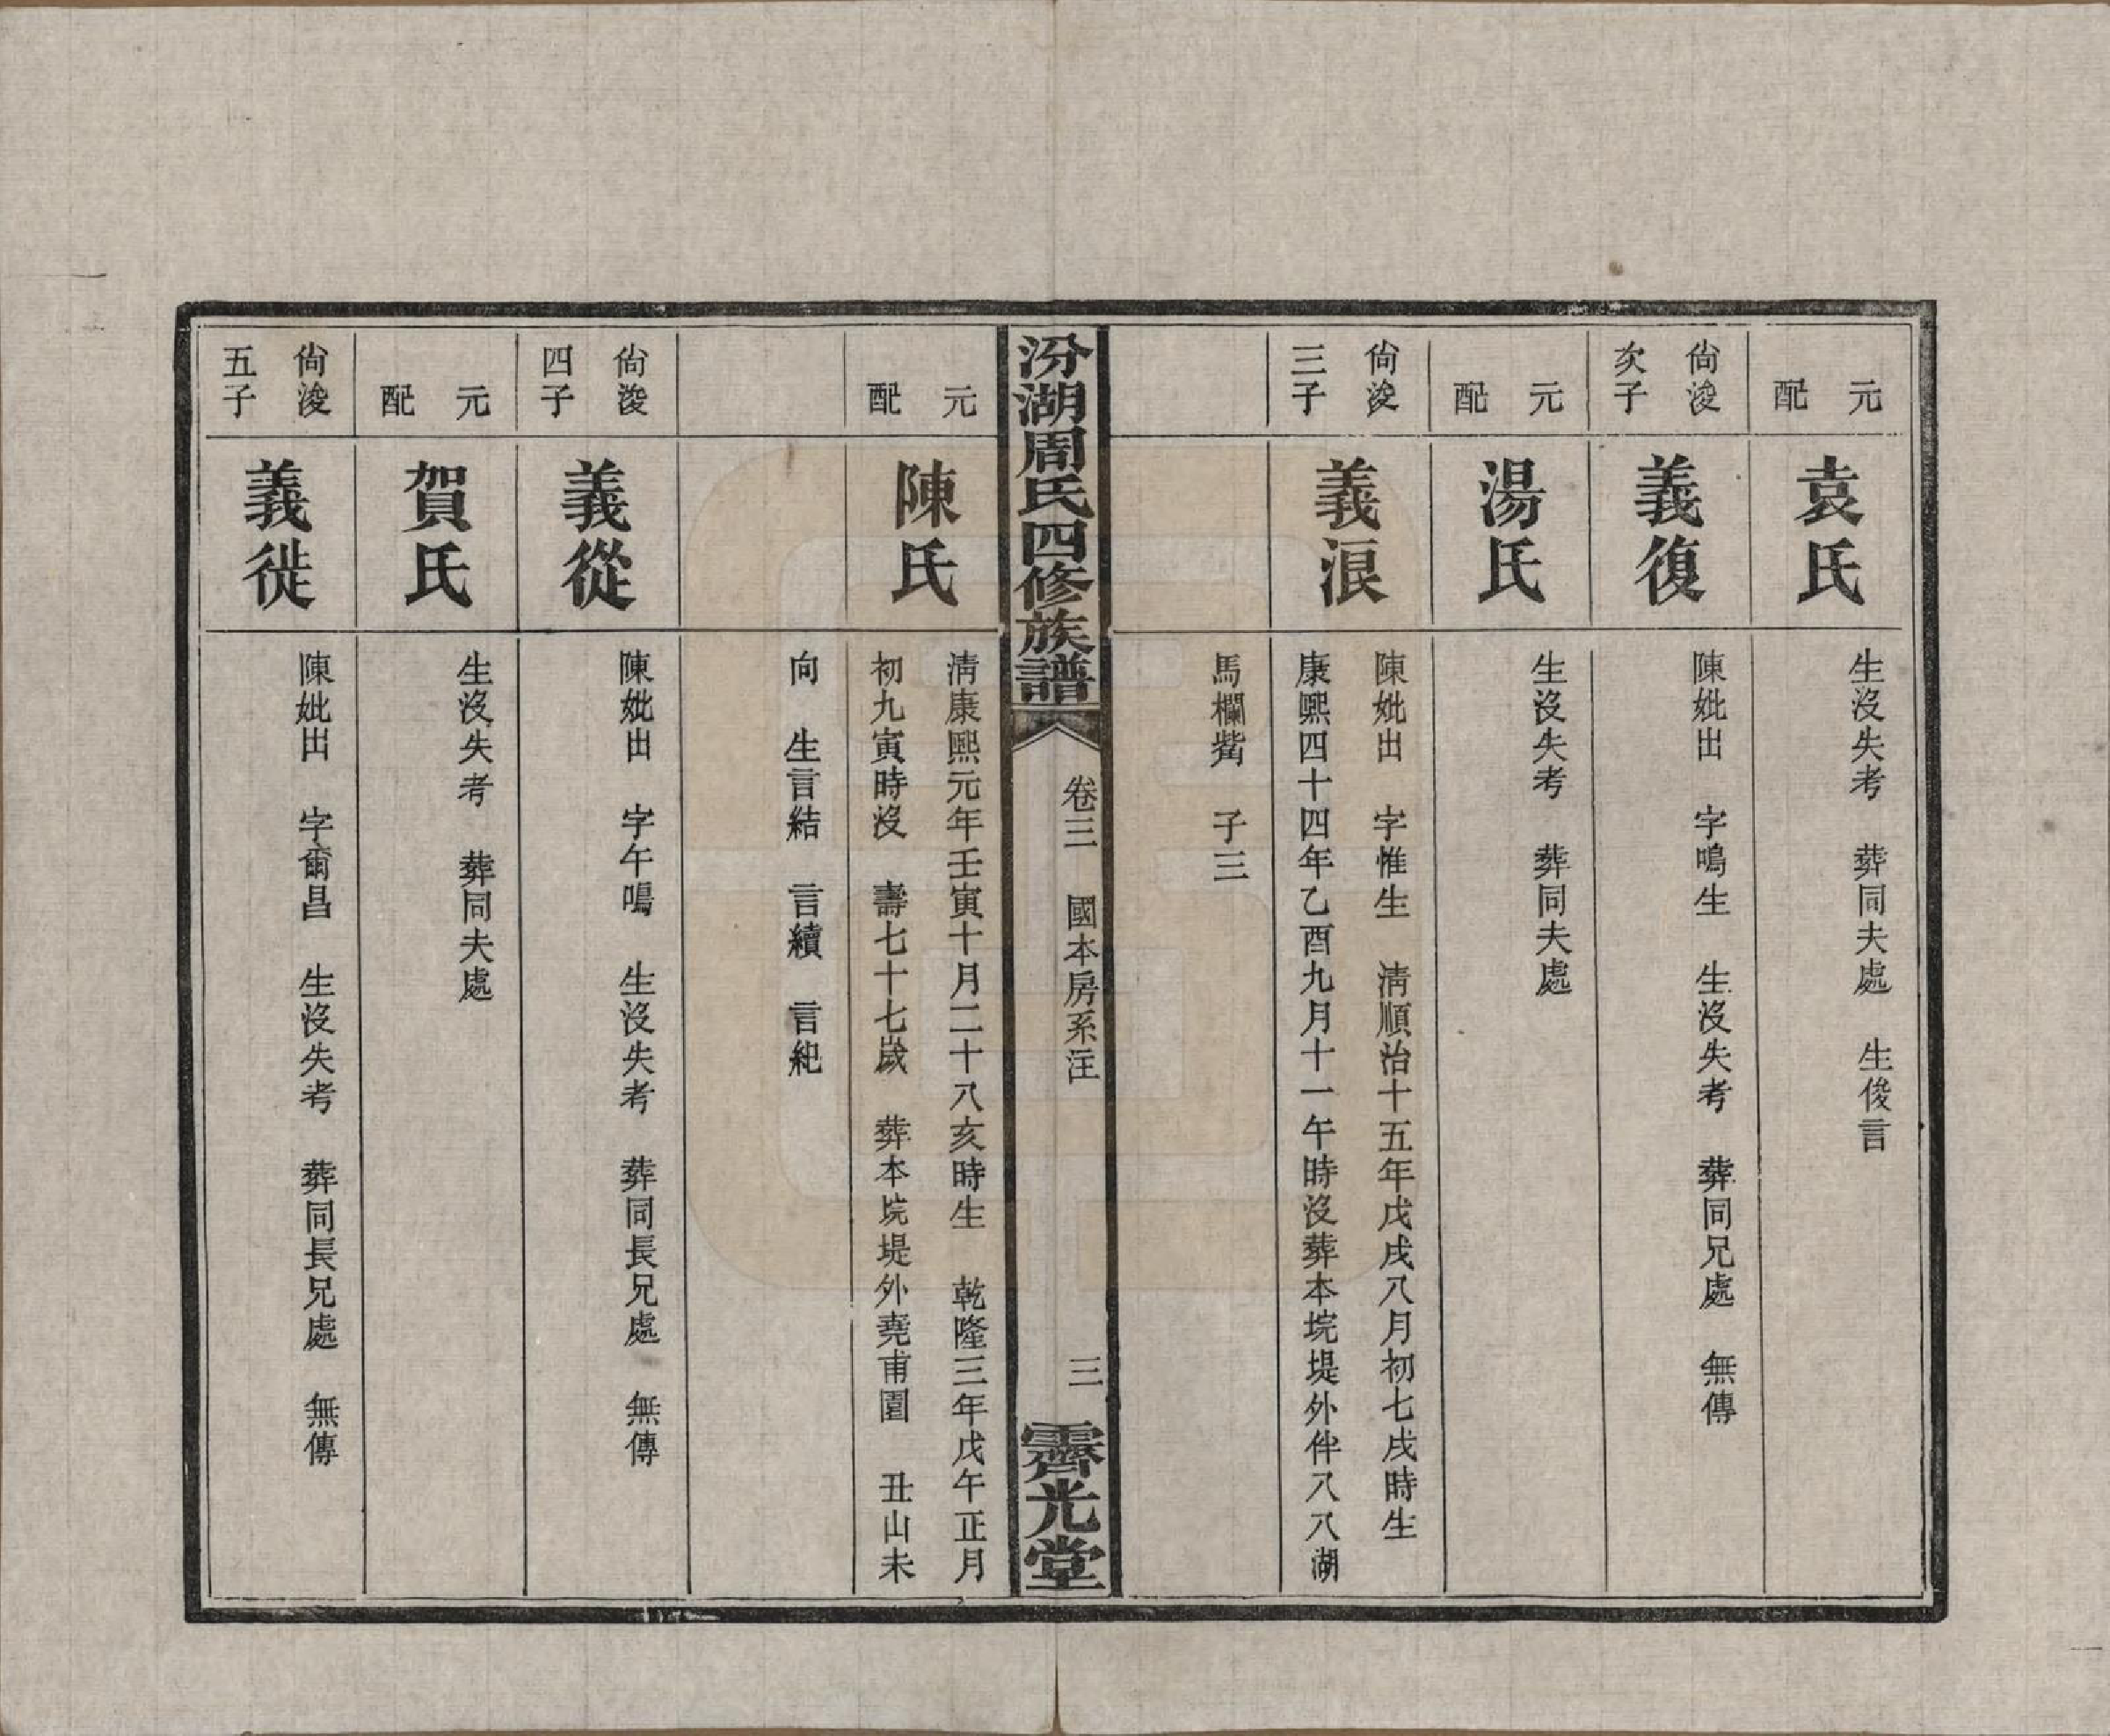 元配
袁氏
生沒失考　葬同夫處　生俊言
尙浚次子
義復
陳妣出　字鳴生　生沒失考　葬同兄處　無傳
元配
湯氏
生沒失考　葬同夫處
尙浚三子
義浪
陳妣出　字惟生　淸順治十五年戊戌八月初七戌時生
康熙四十四年乙酉九月十一午時沒葬本垸堤外伴八八湖
馬欄觜　子三
汾湖周氏四修族譜
卷三　國本房系注
三
霽光堂
元配
陳氏
淸康熙元年壬寅十月二十八亥時生　乾隆三年戊午正月
初九寅時沒　壽七十七嵗　葬本垸堤外堯甫園　丑山未
向　生言結　言續　言紀
尙浚四子
義從
陳妣出　字午鳴　生沒失考　葬同長兄處　無傳
元配
賀氏
生沒失考　葬同夫處
尙浚五子
義徙
陳妣出　字爾昌　生沒失考　葬同長兄處　無傳